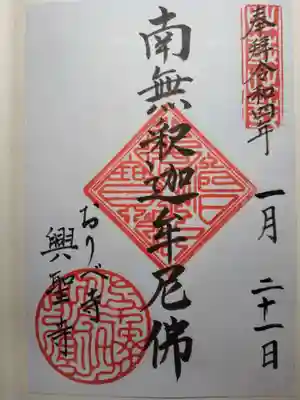 奉拜令和四年
一月二十一日
南無釋迦牟尼佛
おりべ寺
興聖寺